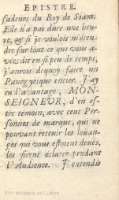 EPISTRE.
sadeurs du Roy de Siam.
Elle n'a pas duré une heure
dre sur tout ce que vous a-
vez dit en si peu de temps,
j'aurois dequoy faire un
Panegyrique entier. J'ay
eu l'avantage, MON-
SEIGNEUR, d'en es-
tre témoin, avec cent Per-
sonnes de marque, qui ne
pouvant retenir les loüan-
ges qui vous estoient deuës,
les firent éclater pendant
l'Audience. J'entendis